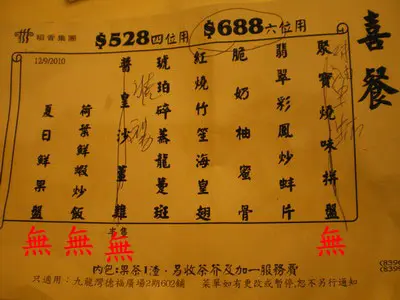 稻香集團
$528四位用
$688六位用
喜餐
12/9/2010
聚寶燒味拼盤
翡翠彩鳳炒蚌片
脆奶柚蜜骨
紅燒竹笙海皇翅
琥珀碎蒸龍躉斑
醬皇沙薑雞
荷葉鮮蝦炒飯
夏日鮮果盤
無
無
無
無
內包:果茶1渣,另收茶芥及加一服務費
只適用:九龍灣德福廣場2期602舖
菜單如有更改或暫停,恕不另行通知